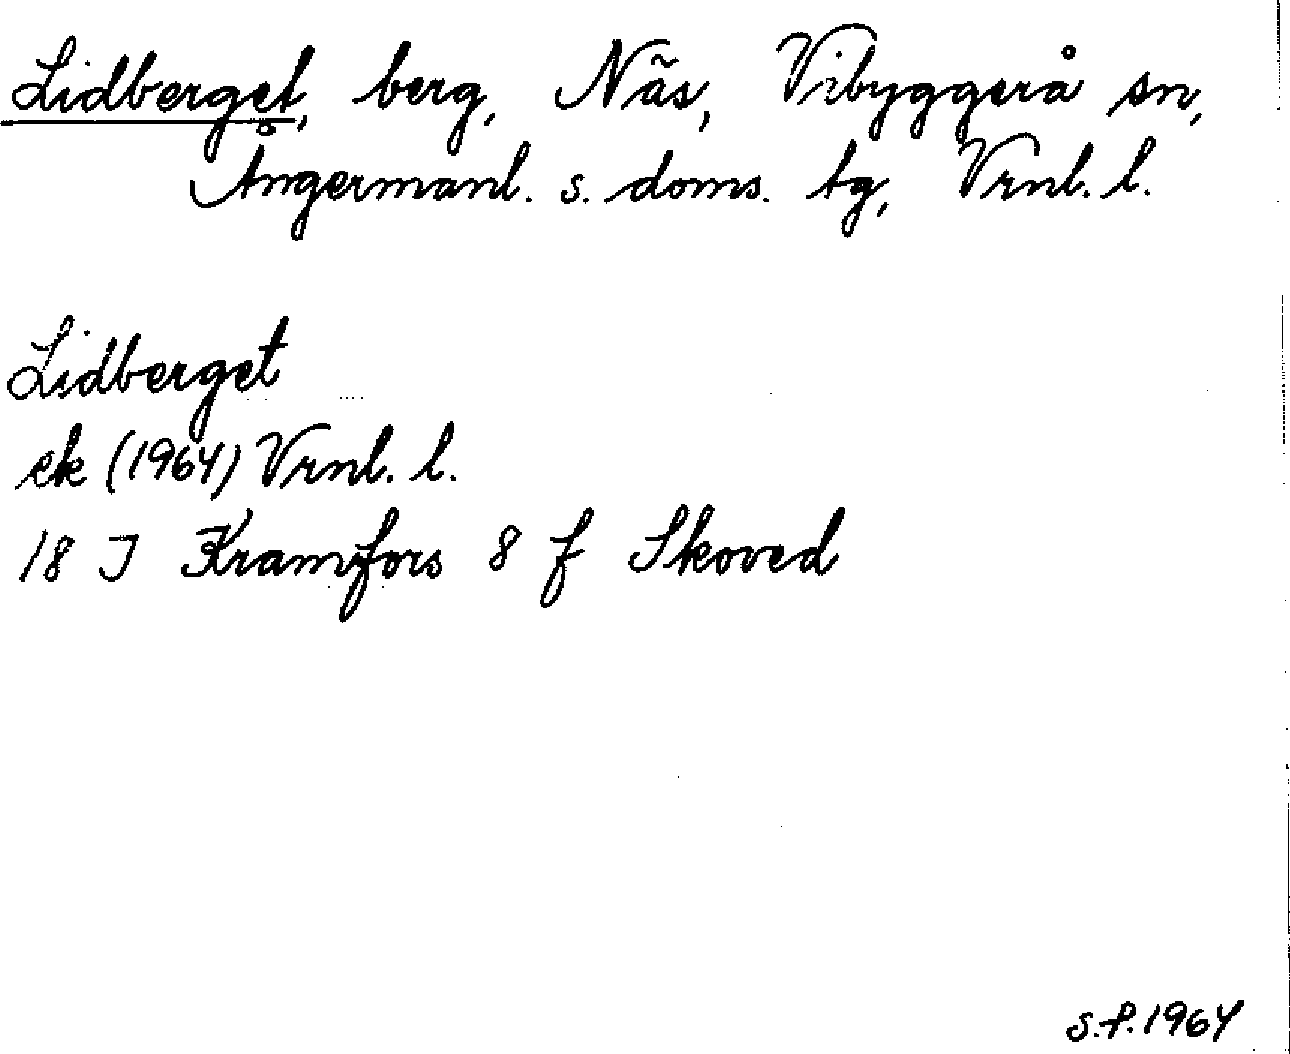 Lidberget, berg, Näs, Vibyggerå sn,
Ångermanl. s. doms. tg, Vrnl. l.
Lidberget
ek (1964) Vrnl. l.
18 J Kramfors 8 f Skoved
s.f. 1964